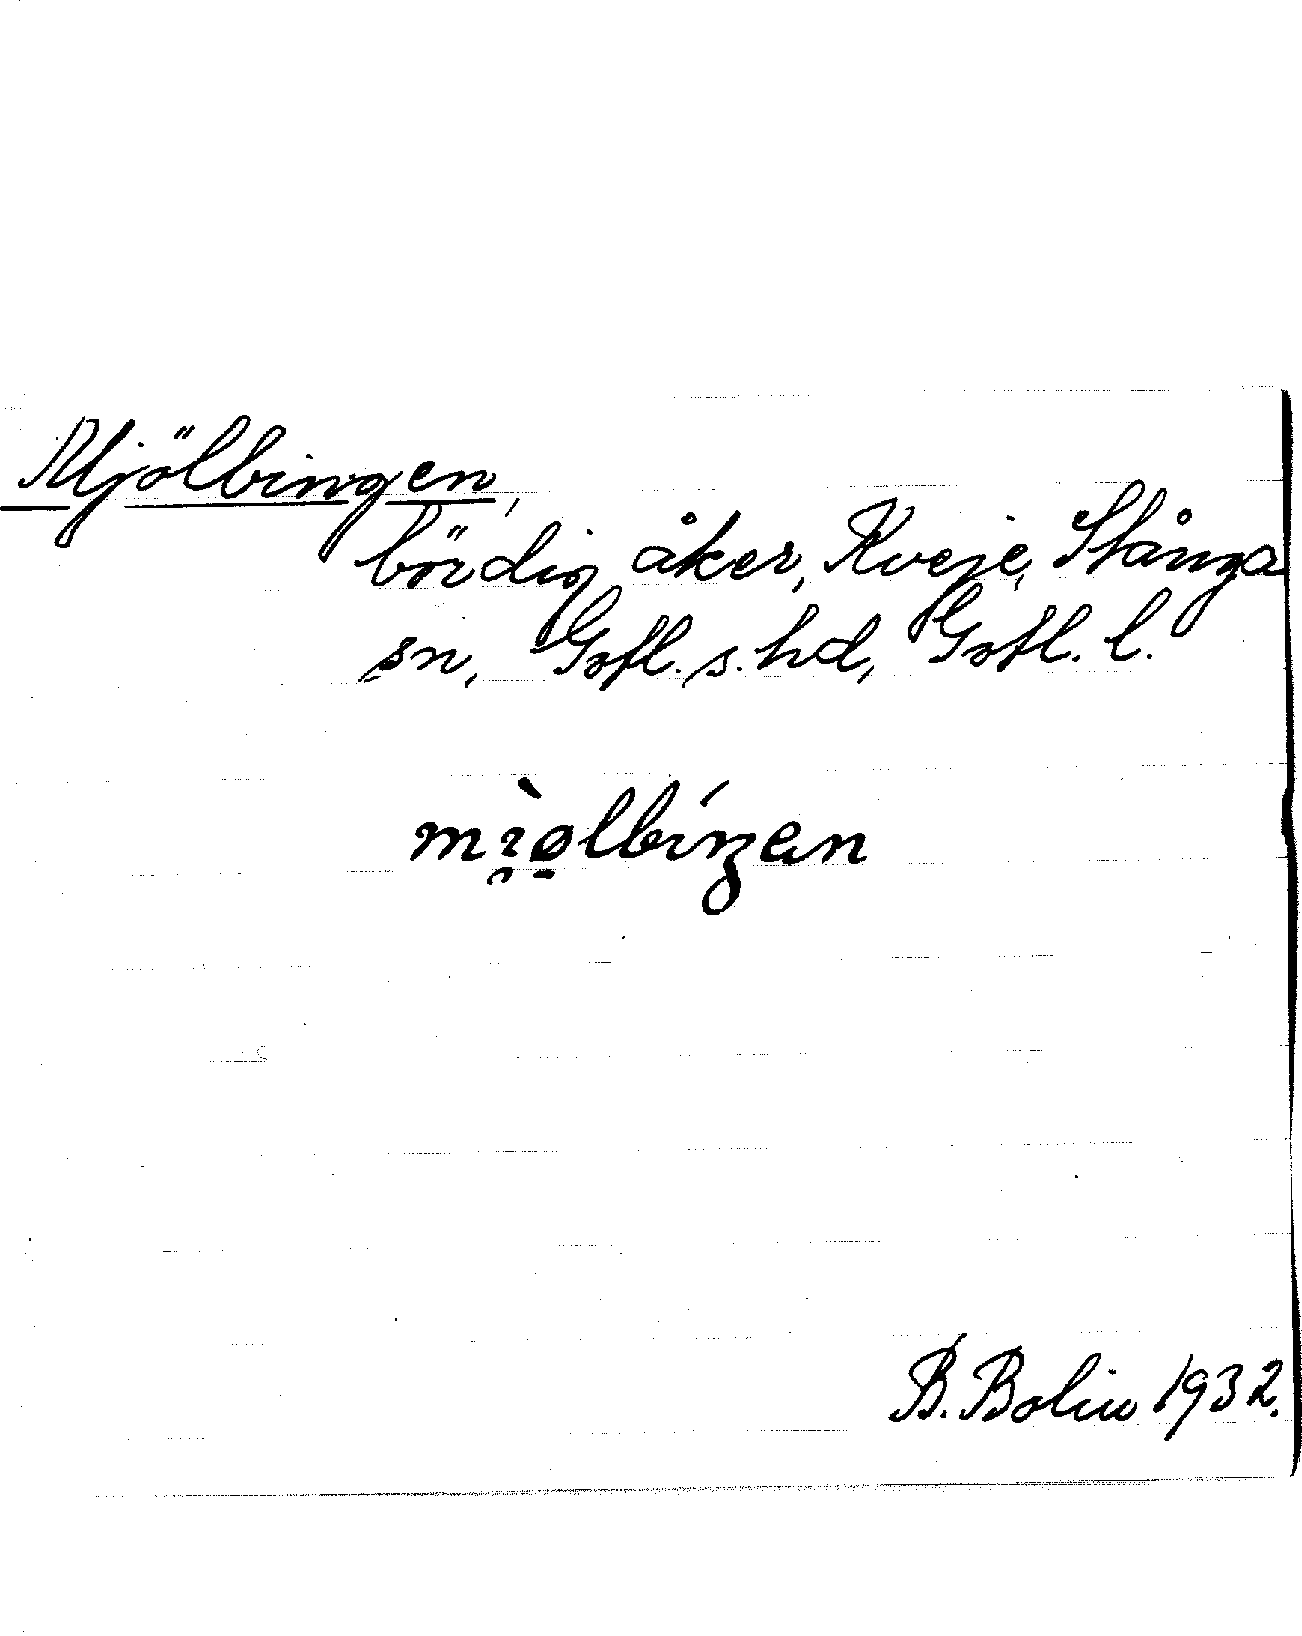 Mjölbingen,
bördig åker, Kveje, Stånga
sn, Gotl. s. hd, Gotl. l.
mi̯ø̠̀lbíŋen
B. Bolin 1932.